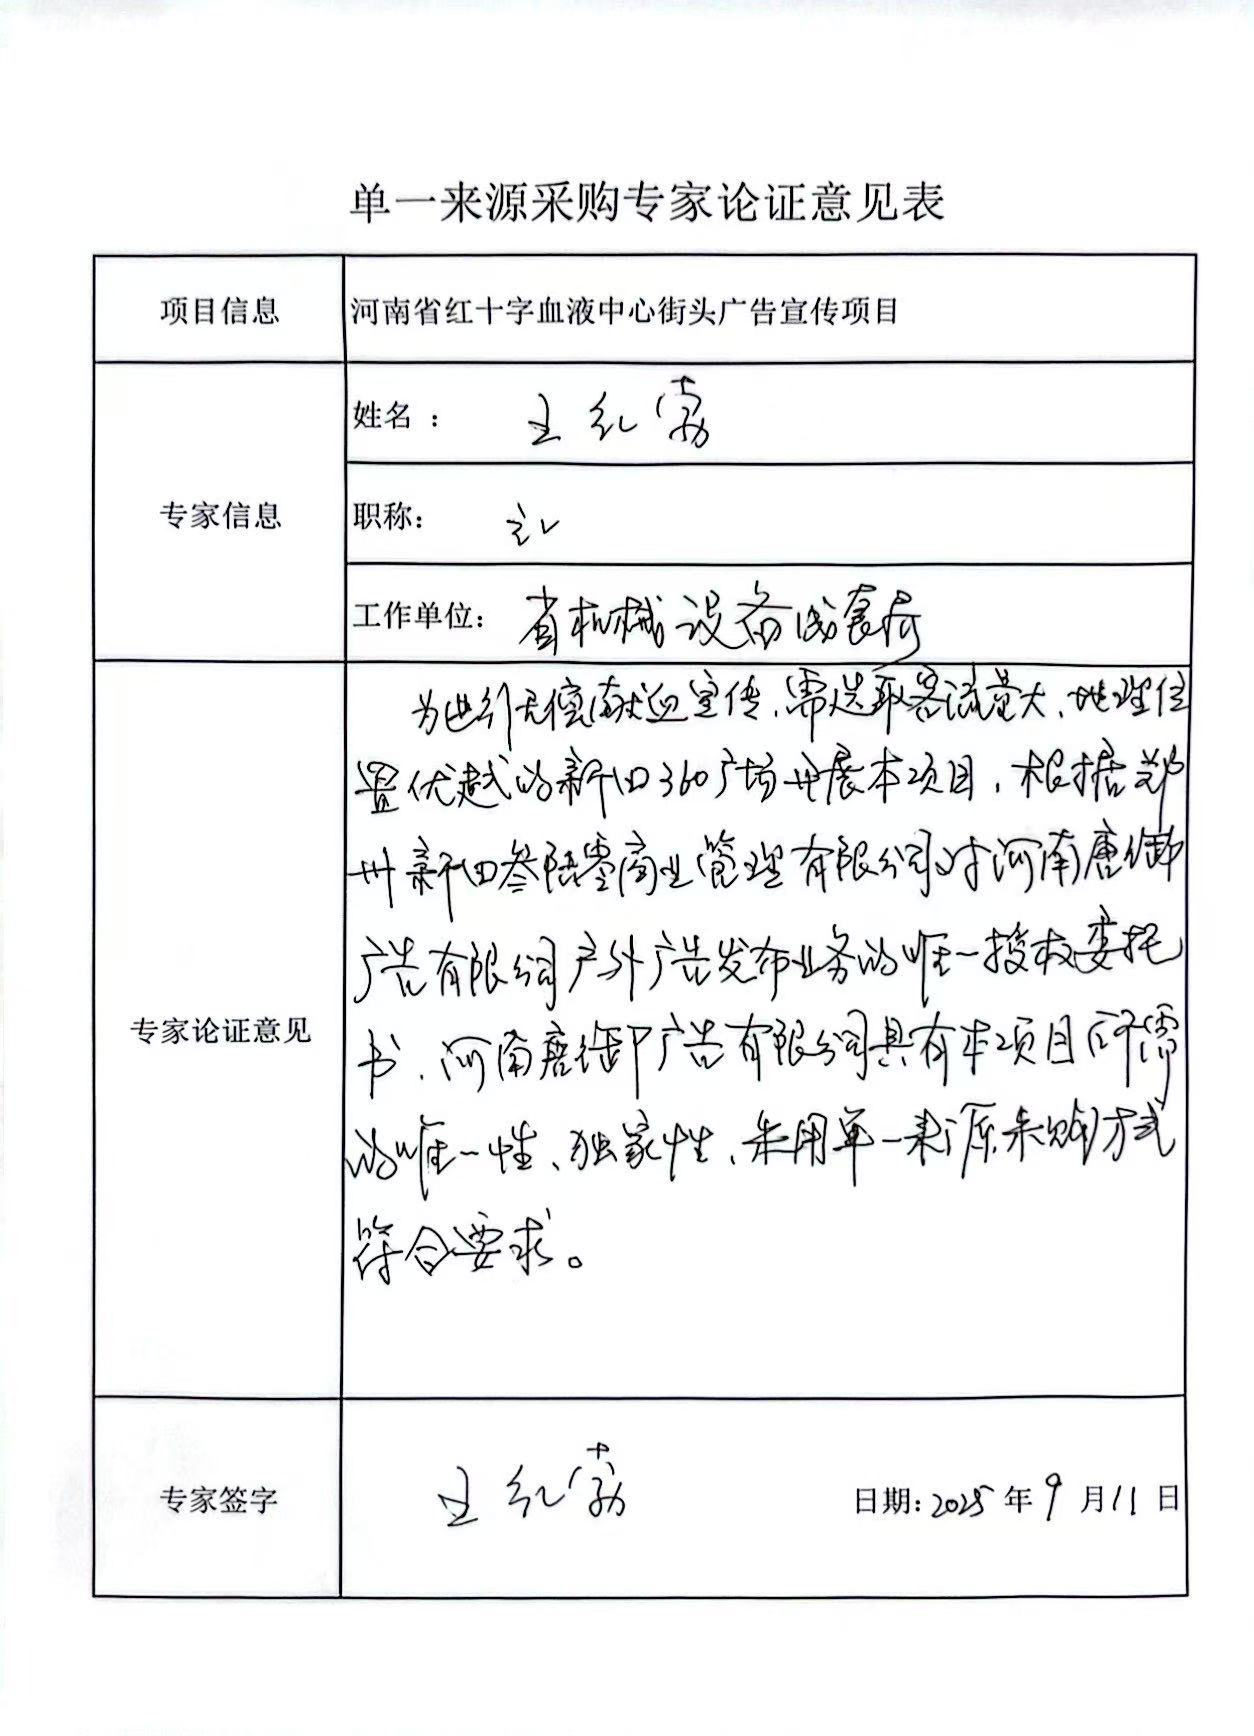 单一来源采购专家论证意见表
项目信息
河南省红十字血液中心街头广告宣传项目
专家信息
姓名：
王红
职称：
工作单位：
省机械设备成套局
专家论证意见
为进行无偿献血宣传，需选取客流量大、地理位
置优越的新田360广场开展本项目，根据郑
州新田叁陆零商业管理有限公司对河南唐御
广告有限公司户外广告发布业务的唯一授权委托
书，河南唐御广告有限公司具有本项目所需
的唯一性、独家性，采用单一来源采购方式
符合要求。
专家签字
王红
日期：2025年9月11日